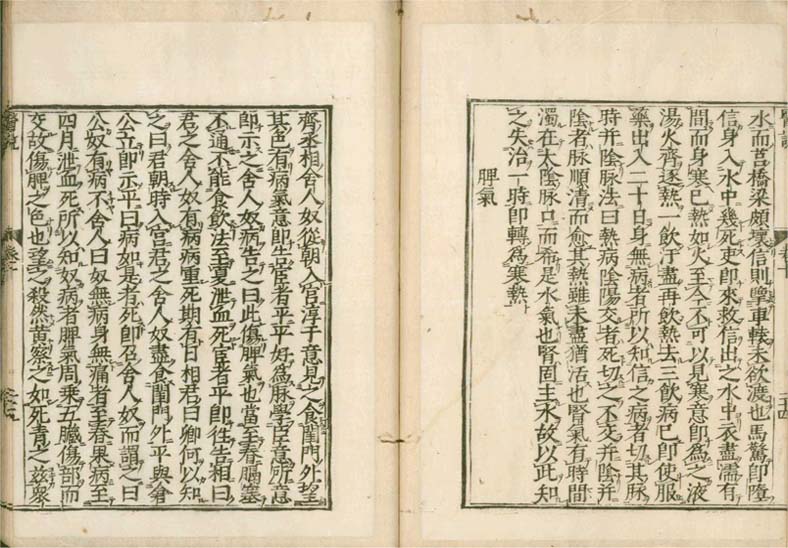 水而莒橋梁頗壞信則擥車轅未欲渡也馬驚即墮
信身入水中幾死吏即來救信出之水中衣盡濡有
間而身寒已熱如火至今不可以見寒意即為之液
湯火齊逐熱一飲汗盡再飲熱去三飲病已即使服
藥出入二十日身無病者所以知信之病者切其脉
時并陰脉法曰熱病陰陽交者死切之不交并陰并
陰者脉順清而愈其熱雖未盡猶活也腎氣有時間
濁在太陰脉口而希是水氣也腎固主水故以此知
之失治一時即轉為寒熱
脾氣
齊丞相舍人奴從朝入宮淳于意見之食閨門外望
其色有病氣意即告宦者平平好為脉學臣意所意
即示之舍人奴病告之曰此傷脾氣也當至春膈塞
不通不能食飲法至夏泄血死宦者平即往告相曰
君之舍人奴有病病重死期有日相君曰卿何以知
之曰君朝時入宮君之舍人奴盡食閨門外平與倉
公立即示平曰病如是者死即召舍人奴而謂之曰
公奴有病不舍人曰奴無病身無痛者至春果病至
四月泄血死所以知奴病者脾氣周乘五臟傷部而
交故傷脾之色也望之殺然黃察之如死青之茲眾
醫說